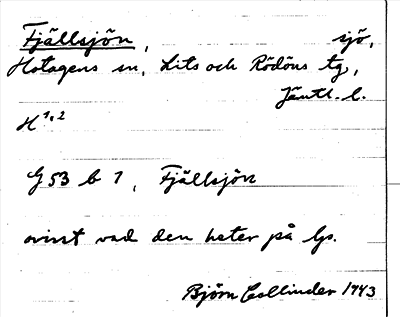 Fjällsjön, sjö,
Hotagens sn, Lits och Rödöns tg,
Jämtl. l.
H 1,2
G 53 b 1, Fjällsjön
ovisst vad den heter på lp.
Björn Collinder 1943